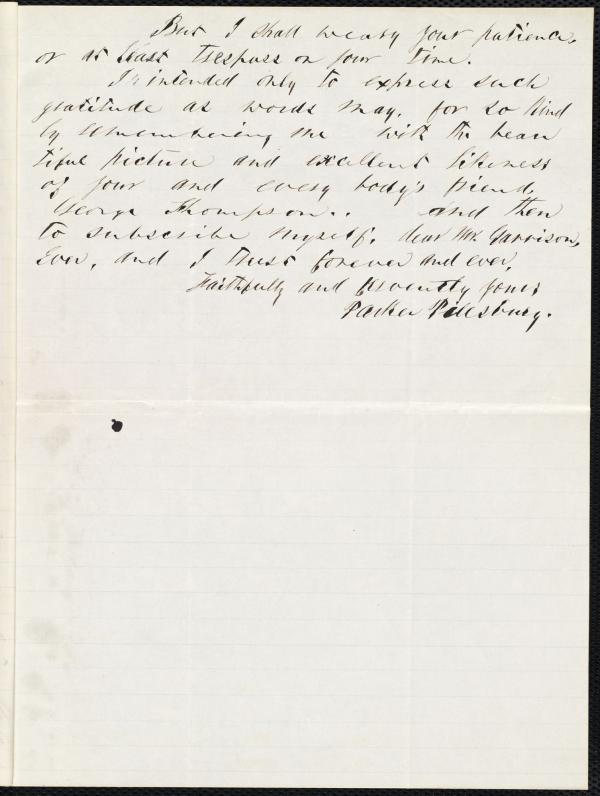 But I shall weary your patience,
or at least trespass on your time.
I intended only to express such
gratitude as words may, for so kind
ly remembering me with the beau
tiful picture and excellent likeness
of your and every body's friend,
George Thompson.. and then
to subscribe myself, dear Mr. Garrison,
Ever, and I trust forever and ever,
Faithfully and fervently yours
Parker Pillsbury.